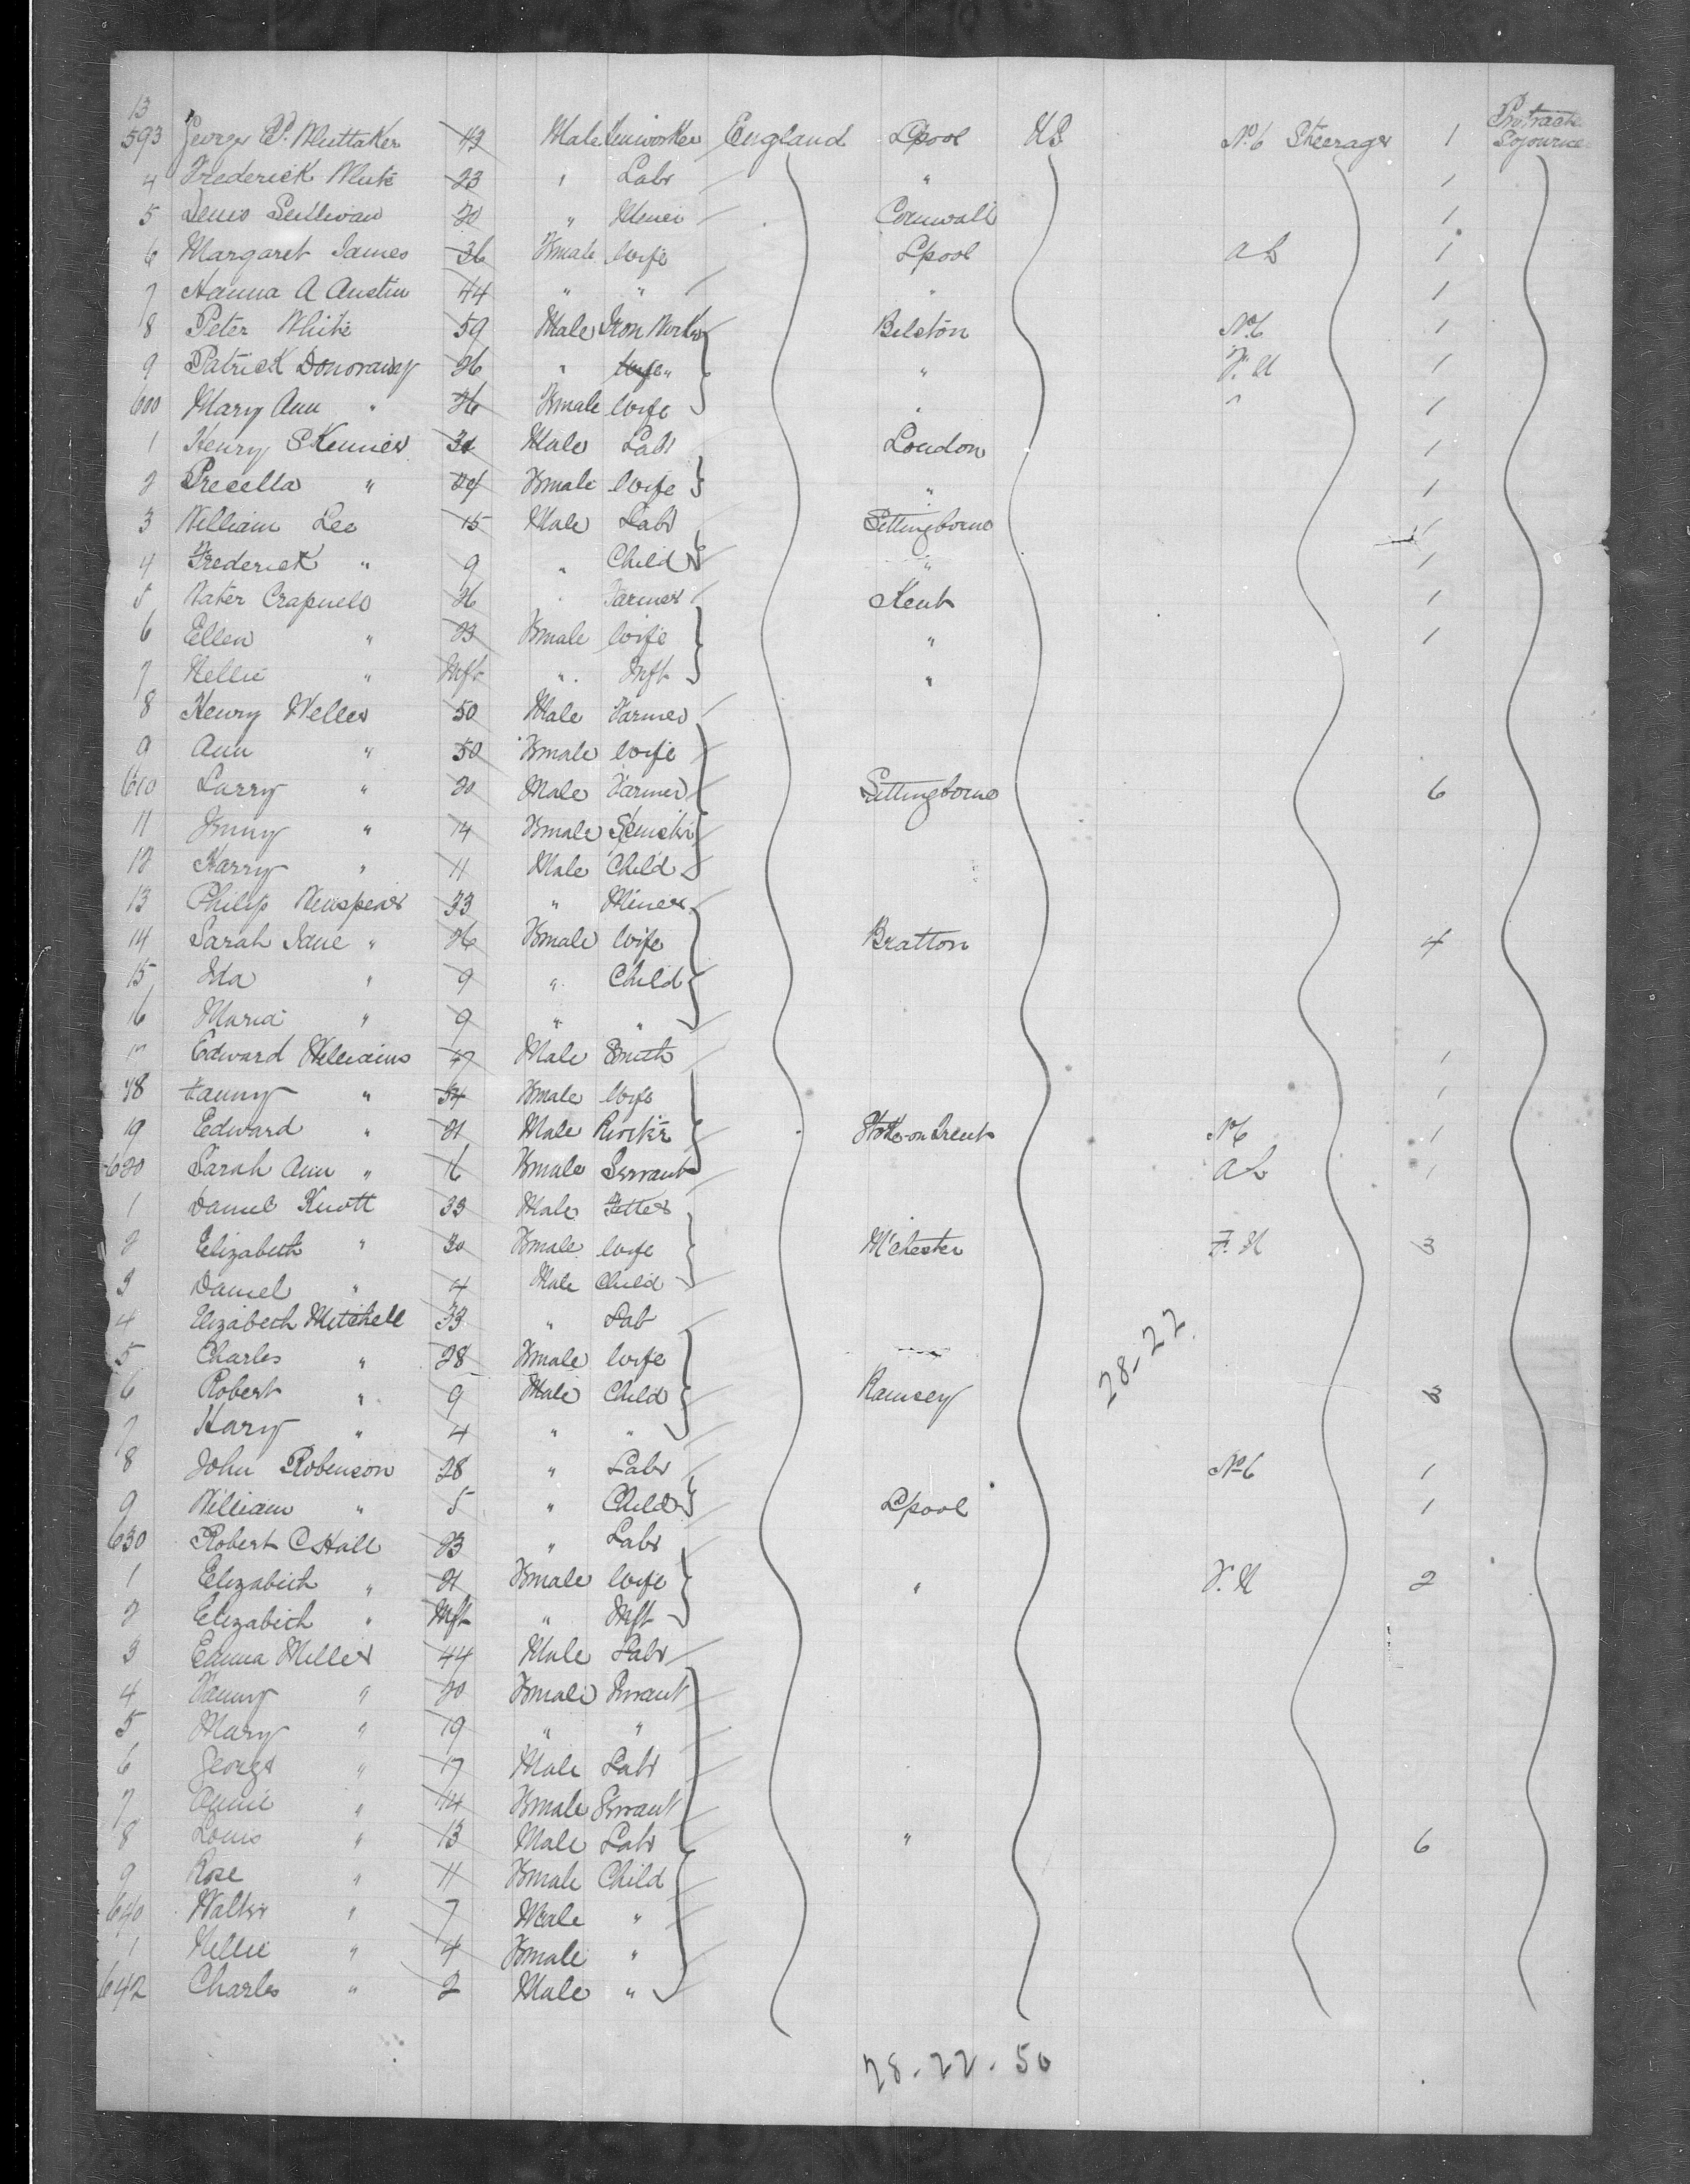 13
593 George P. Whittaker 43 Male Tinworker England Lpool US No.6 Steerage 1 Protract Sojourne
4 Frederick White 23 " Labr " 1
5 Denis Sullivan 20 " Miner Cornwall 1
6 Margaret James 36 Fmale Wife Lpool aL 1
7 Hanna A Austin 44 " " " 1
8 Peter White 59 Male Iron Worker Bilston No.6 1
9 Patrick Donovany 26 " Wife " " F. U 1
600 Mary Ann " 26 Fmale Wife " " 1
1 Henry Skenner 30 Male Labr London 1
2 Precella " 24 Fmale Wife " 1
3 William Lee 15 Male Labr Sittingborne 1
4 Frederick " 9 " Child " 1
5 Water Crapnell 26 " Farmer Kent 1
6 Ellen " 23 Fmale Wife " 1
7 Nellie " Inft " Inft "
8 Henry Weller 50 Male Farmer
9 Ann " 50 Fmale Wife
610 Larry " 20 Male Farmer Sittingborne 6
11 Jenny " 14 Fmale
12 Harry " 11 Male Child
13 Philip 33 " Miner
14 Sarah Jane " 26 Fmale Wife Bratton 4
15 Ida " 9 " Child
16 Maria " 9 " "
17 Edward Williams 47 Male Smith 1
18 Fanny " 54 Fmale Wife 1
19 Edward " 21 Male Stoke-on Trent No6 1
620 Sarah Ann " 16 Fmale Servant aL 1
1 Daniel Knott 33 Male Fitter
2 Elizabeth " 30 Fmale Wife M'chester F. U 3
3 Daniel " 4 Male Child
4 Elizabeth Mitchell 33 " Lab
5 Charles " 28 Fmale Wife 28-22
6 Robert " 9 Male Child Ramsey 3
7 Hary " 4 " "
8 John Robinson 28 " Labr No6 1
9 William " 5 " Child Lpool 1
630 Robert C Hall 23 " Labr
1 Elizabeth " 21 Fmale Wife " F. U 2
2 Elizabeth " Inft " Inft
3 Emma Miller 44 Male Labr
4 Fanny " 20 Fmale Srvant
5 Mary " 19 " "
6 George " 17 Male Labr
7 Annie " 14 Fmale Srvant
8 Louis " 13 Male Labr " 6
9 Rose " 11 Fmale Child
640 Walter " 7 Male "
1 Nellie " 4 Fmale "
642 Charles " 2 Male "
28-22-50